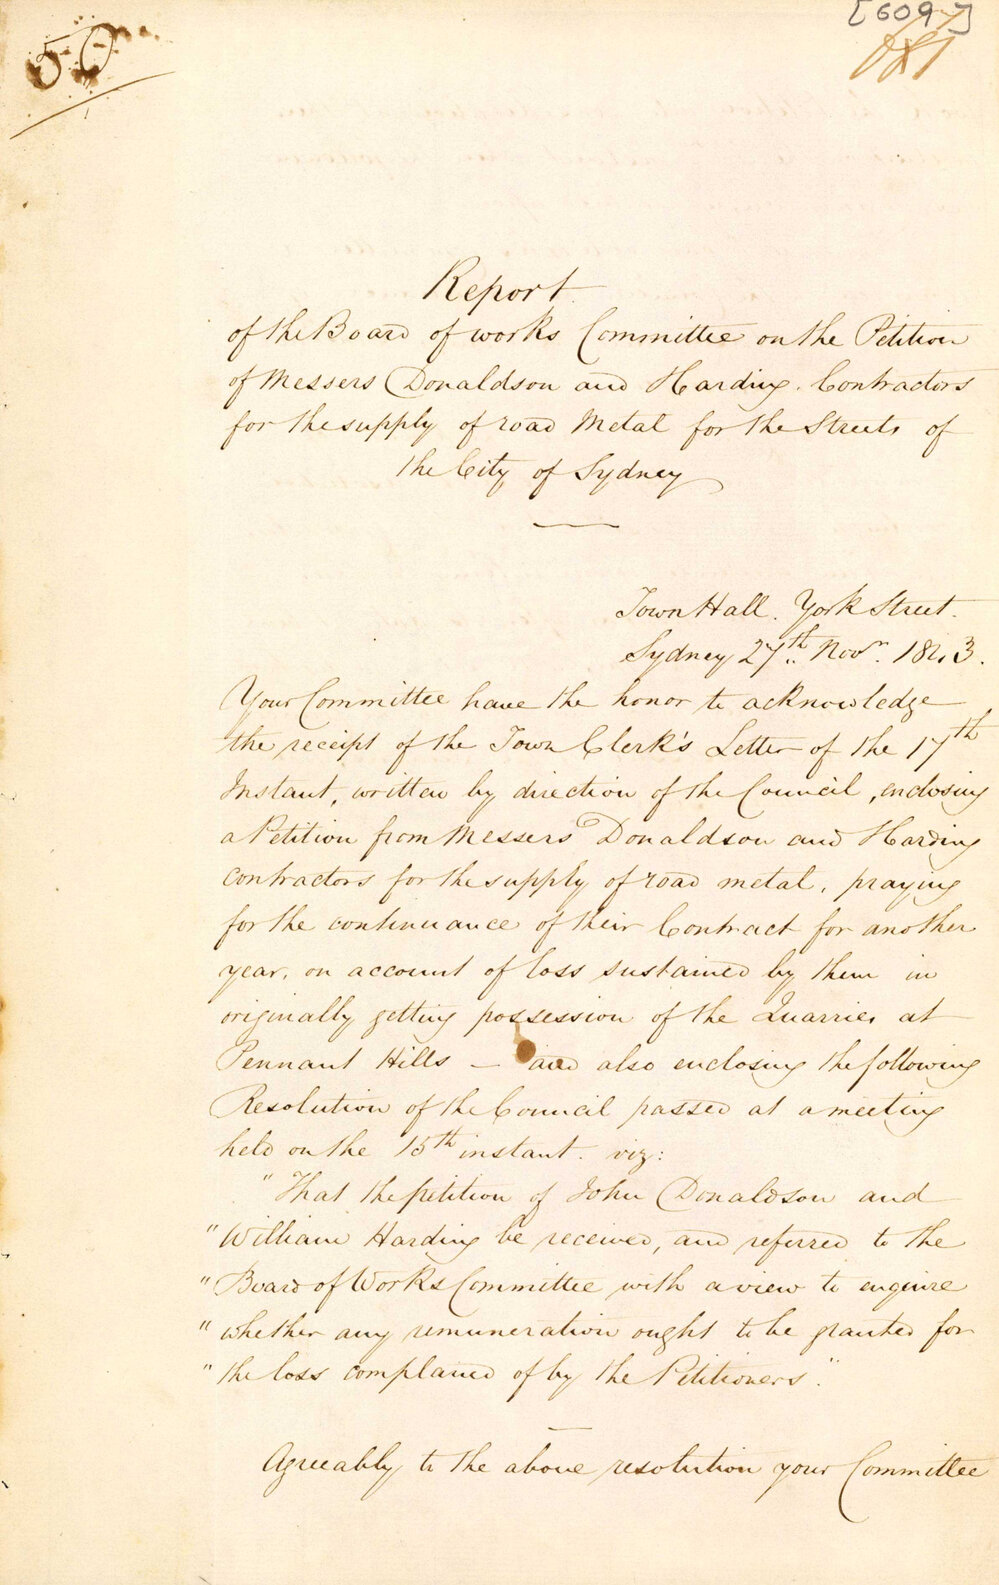 50
[609]
Report
of the Board of works Committee on the Petition
of Messers Donaldson and Harding. Contractors
for the supply of road Metal for the Streets of
the City of Sydney
Town Hall. York Street.
Sydney 27th. Novr. 1843.
Your Committee have the honor to acknowledge
the receipt of the Town Clerk's Letter of the 17th
Instant, written by direction of the Council, enclosing
a Petition from Messers Donaldson and Harding
contractors for the supply of road metal, praying
for the continuance of their Contract for another
year, on account of loss sustained by them in
originally getting possession of the Quarries at
Pennant Hills — and also enclosing the following
Resolution of the Council passed at a meeting
held on the 15th instant. viz:
"That the petition of John Donaldson and
"William Harding be received, and referred to the
"Board of Works Committee with a view to enquire
"whether any remuneration ought to be granted for
"the loss complained of by the Petitioners."
Agreeably to the above resolution your Committee